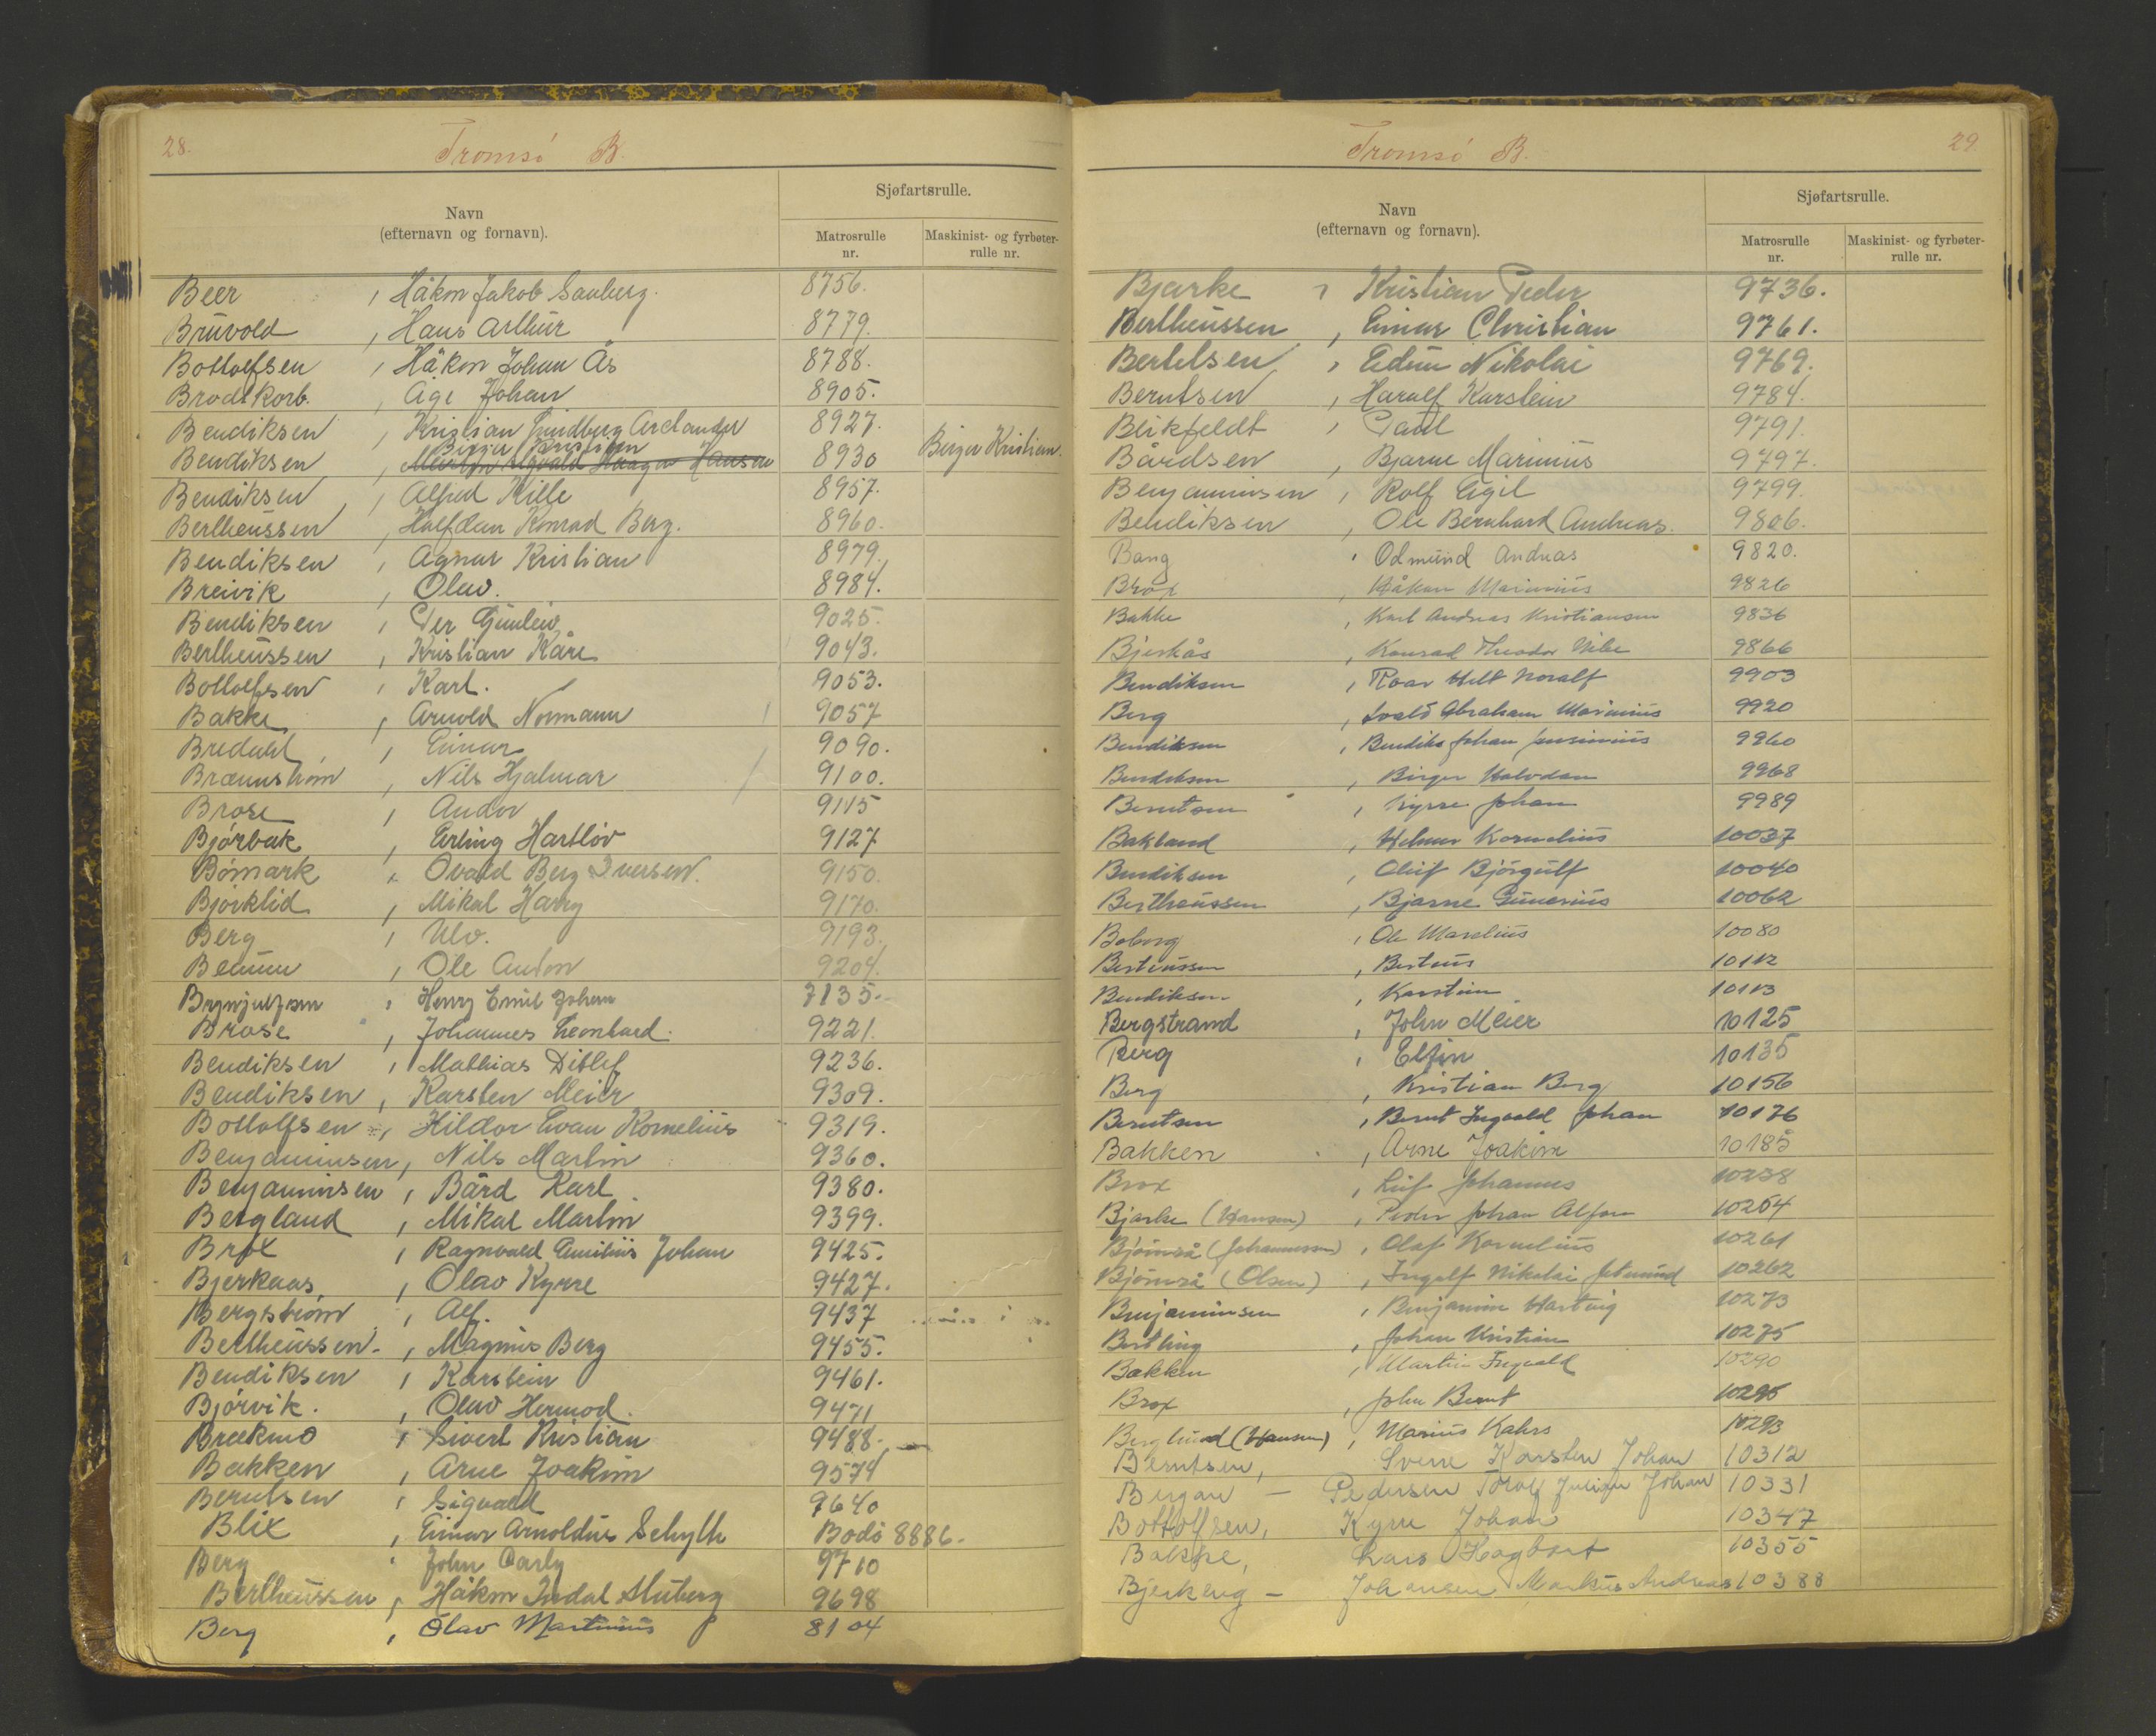 28.
Tromsö B.
Navn
(efternavn og fornavn).
Sjøfartsrulle.
Matrosrulle
nr.
Maskinist- og fyrbøter-
rulle nr.
Beer , Håkon Jakob Sauberg. 8756.
Bruvold , Hans Arthur 8779.
Bottolfsen , Håkon Johan Ås 8788.
Brodtkorb. , Åge Johan 8905.
Bendiksen , Kristian Lindberg 8927.
Birger Kristian
Bendiksen , Hansen 8930 Birger Kristian.
Bendiksen , Alfred Kille 8957.
Bertheussen , Halfdan Konrad Berg. 8960.
Bendiksen , Agnar Kristian 8979.
Breivik , Olav. 8984.
Bendiksen , Per Gunleiv 9025.
Bertheussen , Kristian Kåre 9043.
Bottolfsen , Karl. 9053.
Bakke , Arnold Normann 9057
Bredahl , Einar 9090.
Brænnstrøm , Nils Hjalmar 9100.
Brose , Andor 9115
Bjørbak , Erling Hartløv 9127
Bömark , Ovald Berg Iversen. 9150.
Bjørklid , Mikal Harry 9170.
Berg , Ulv. 9193.
, Ole Anton 9204.
Brynjulfsen , Henry Emil Johan 7135.
Brose , Johannes Leonhard. 9221.
Bendiksen , Mathias Ditlef 9236.
Bendiksen , Karsten Meier 9309.
Bottolfsen , Hildor Evan Kornelius 9319.
Benjaminsen , Nils Martin 9360.
Benjaminsen , Bård Karl 9380.
Bergland , Mikal Martin 9399.
Brox , Ragnvald Emilius Johan 9425.
Bjerkaas , Olav Kyrre 9427.
Bergstrøm , Alf. 9437
Bertheussen , Magnus Berg 9455.
Bendiksen , Karstein 9461.
Bjørvik. , Olav Hermod. 9471
Brækmo , Sivert Kristian 9488.
Bakken , Arne Joakim 9574
Berntsen , Sigvald 9640
Blix , Einar Arnoldus Schytth Bodö 8886.
Berg , John Carly 9710
Bertheussen , Håkon Indal 9698
Berg , Olav Martinus 8104
29.
Tromsö B.
Navn
(efternavn og fornavn).
Sjøfartsrulle.
Matrosrulle
nr.
Maskinist- og fyrbøter-
rulle nr.
Bjerke , Kristian Peder 9736.
Bertheussen , Einar Christian 9761.
Bertelsen , Edvin Nikolai 9769.
Berntsen , Haralf Karstein 9784.
Blikfeldt , Paul 9791.
Bårdsen , Bjarne Marinius 9797.
Benjaminsen , Rolf Egil 9799.
Bendiksen , Ole Bernhard Andreas. 9806.
Bang , Odmund Andreas 9820.
Brox , Håkon Marinius 9826
Bakke , Karl Andreas Kristiansen 9836
Bjerkås , Konrad Theodor 9866
Bendiksen , Roar Noralf 9903
Berg , Abraham Marinius 9920
Bendiksen , Bendiks Johan Jensinius 9960
Bendiksen , Birger Halvdan 9968
Berntsen , Kyrre Johan 9989
Bakland , Helmer Kornelius 10037
Bendiksen , Oluf Björgulf 10040
Bertheussen , Bjarne Gunerius 10062
Boberg , Ole Marelius 10080
Berteussen , Berteus 10112
Bendiksen , Karstein 10113
Bergstrand , John Meier 10125
Berg , Elfin 10135
Berg , Kristian Berg 10156
Berntsen , Bernt Ingvald Johan 10176
Bakken , Arne Joakim 10185
Brox , Leif Johannes 10238
Bjerke (Hansen) , Peder Johan Alfon 10254
Björnså (Johannessen) , Olaf Kornelius 10261
Björnså (Olsen) , Ingolf Nikolai 10262
Benjaminsen , Benjamin Hartvig 10273
Bertling , Johan Kristian 10275
Bakken , Martin Ingvald 10290
Brox , John Bernt 10295
Berglund (Hansen) , Marius Kahrs 10293
Berntsen, Sverre Karsten Johan 10312
Bergan – Pedersen Torolf Johan 10331
Bottolfsen, Kyrre Johan 10347
Bakke, Lars Hagbart 10355
Bjerkeng – Johansen Markus Andreas 10388